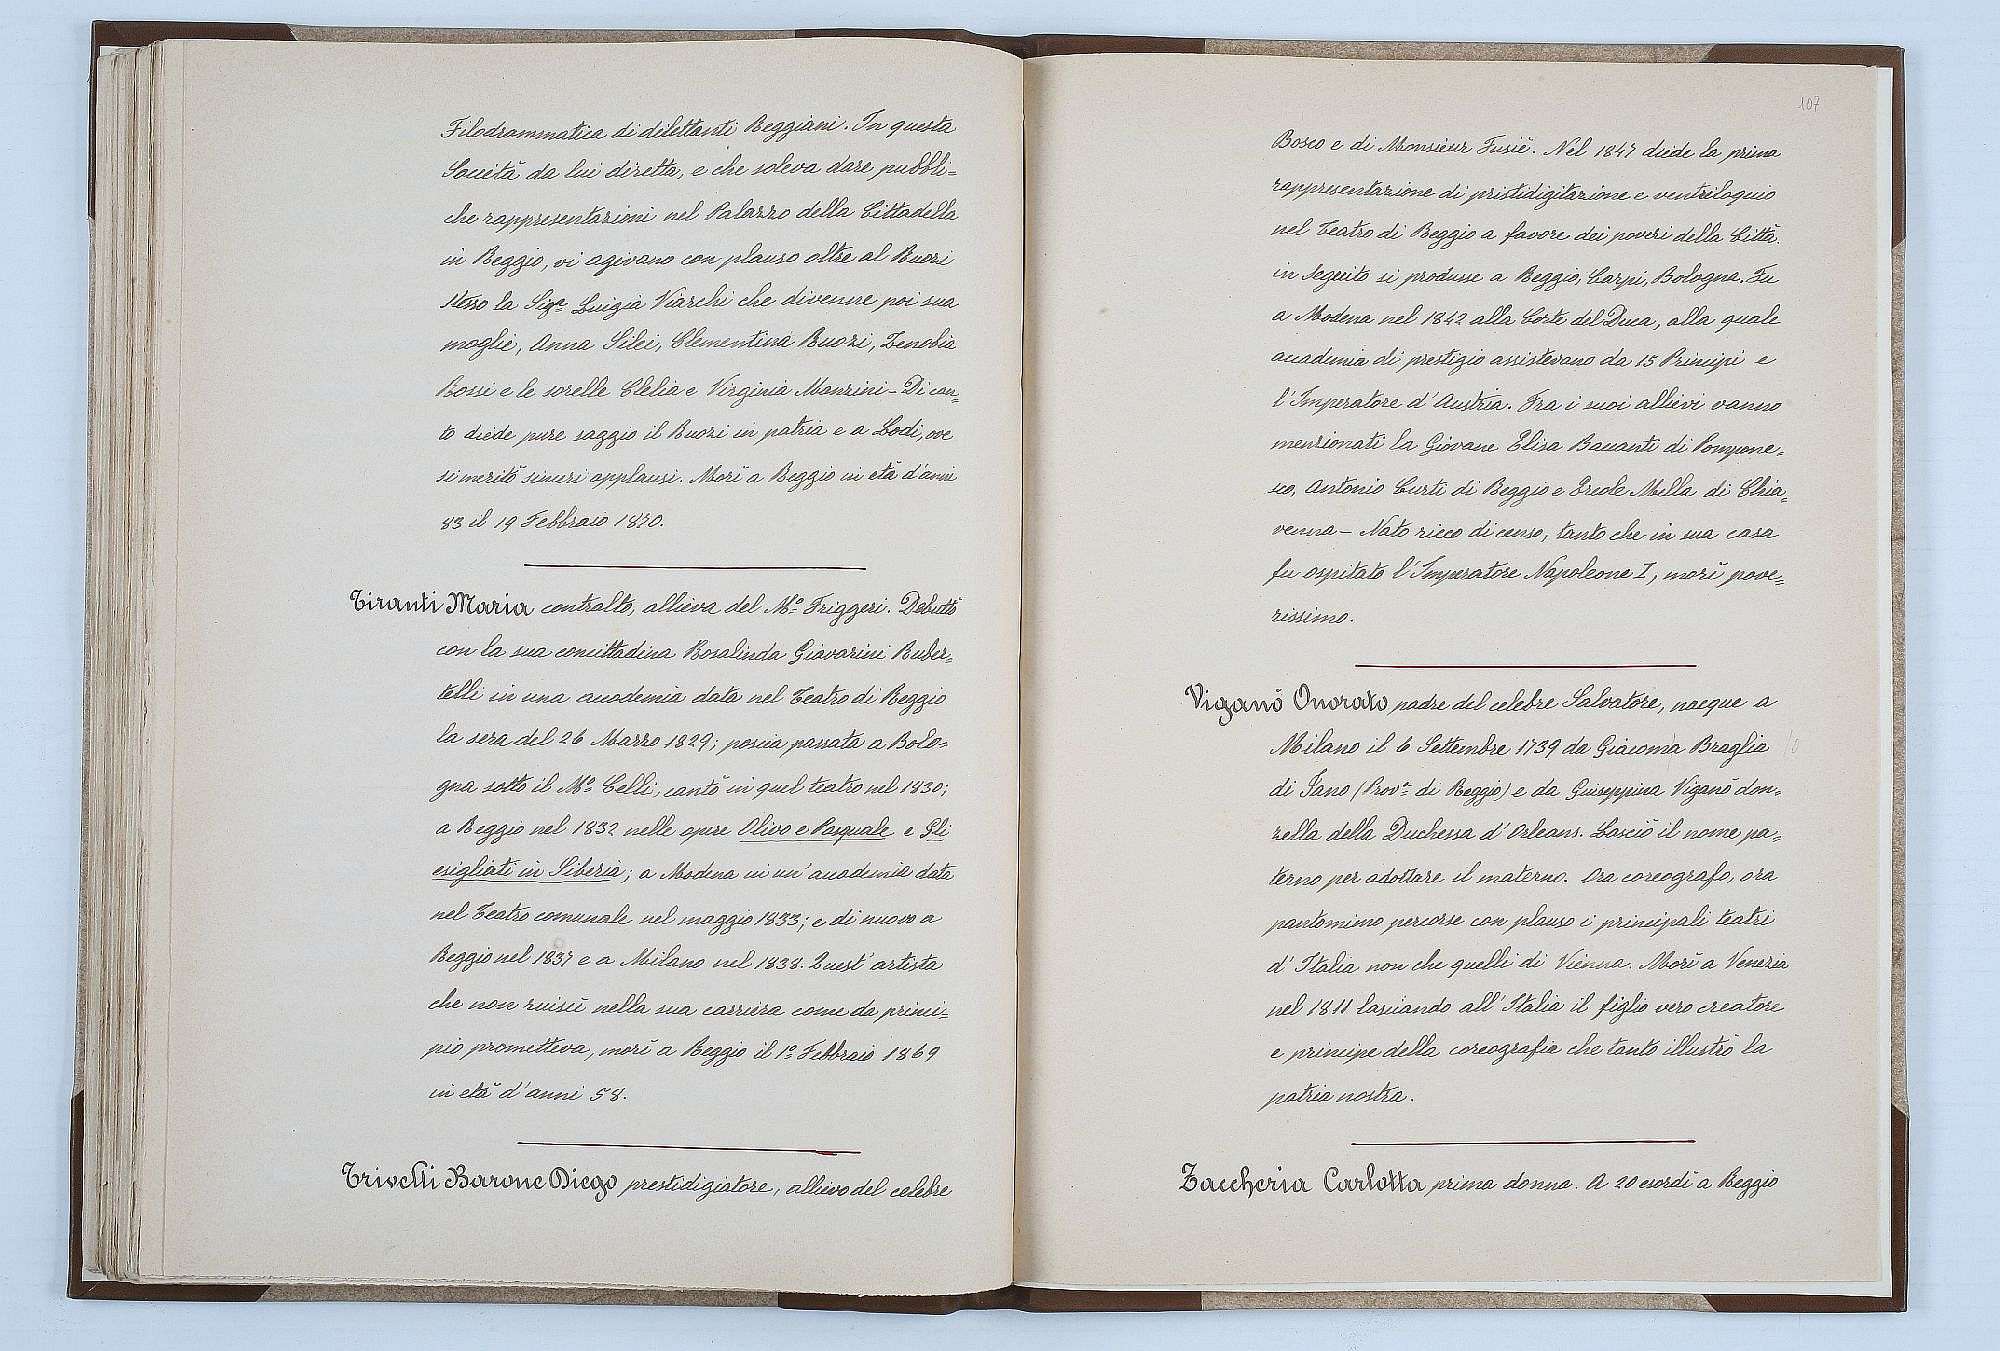 Filodrammatica di dilettanti Reggiani. In questa
Società da lui diretta, e che soleva dare pubbli=
che rappresentazioni nel Palazzo della Cittadella
in Reggio, vi agivano con plauso oltre al Ruozi
stesso la Sigª Luigia Viarchi che divenne poi sua
moglie, Anna Silei, Clementina Ruozi, Zenobia
Rossi e le sorelle Clelia e Virginia Manzini – Di can=
to diede pure saggio il Ruozi in patria e a Lodi, ove
si meritò sinceri applausi. Morì a Reggio in età d'anni
83 il 19 Febbraio 1870.
Tiranti Maria contralto, allieva del Mº Friggeri. Debuttò
con la sua concittadina Rosalinda Giavarini Ruber=
telli in una accademia data nel Teatro di Reggio
la sera del 26 Marzo 1829; poscia passata a Bolo=
gna sotto il Mº Celli, cantò in quel teatro nel 1830;
a Reggio nel 1832 nelle opere Olivo e Pasquale e Gli
esigliati in Siberia; a Modena in un'accademia data
nel Teatro comunale nel maggio 1833; e di nuovo a
Reggio nel 1837 e a Milano nel 1838. Quest'artista
che non riuscì nella sua carriera come da princi=
pio prometteva, morì a Reggio il 1º Febbraio 1869
in età d'anni 58.
Trivelli Barone Diego prestidigiatore, allievo del celebre
107
Bosco e di Monsieur Fusiè. Nel 1847 diede la prima
rappresentazione di pristidigitazione e ventriloquio
nel Teatro di Reggio a favore dei poveri della Città.
in seguito si produsse a Reggio, Carpi, Bologna. Fu
a Modena nel 1842 alla Corte del Duca, alla quale
accademia di prestigio assistevano da 15 Principi e
l'Imperatore d'Austria. Fra i suoi allievi vanno
menzionati la Giovane Elisa Baccanti di Pompone=
sco, Antonio Curti di Reggio e Ercole Mella di Chia=
venna – Nato ricco di censo, tanto che in sua casa
fu ospitato l'Imperatore Napoleone I, morì pove=
rissimo.
Viganò Onorato padre del celebre Salvatore, nacque a
Milano il 6 Settembre 1739 da Giacoma Braglia /o
di Fano (Provª di Reggio) e da Giuseppina Viganò don=
zella della Duchessa d'Orleans. Lasciò il nome pa=
terno per adottare il materno. Ora coreografo, ora
pantomimo percorse con plauso i principali teatri
d'Italia non che quelli di Vienna. Morì a Venezia
nel 1811 lasciando all'Italia il figlio vero creatore
e principe della coreografia che tanto illustrò la
patria nostra.
Zaccheria Carlotta prima donna. A 20 esordì a Reggio